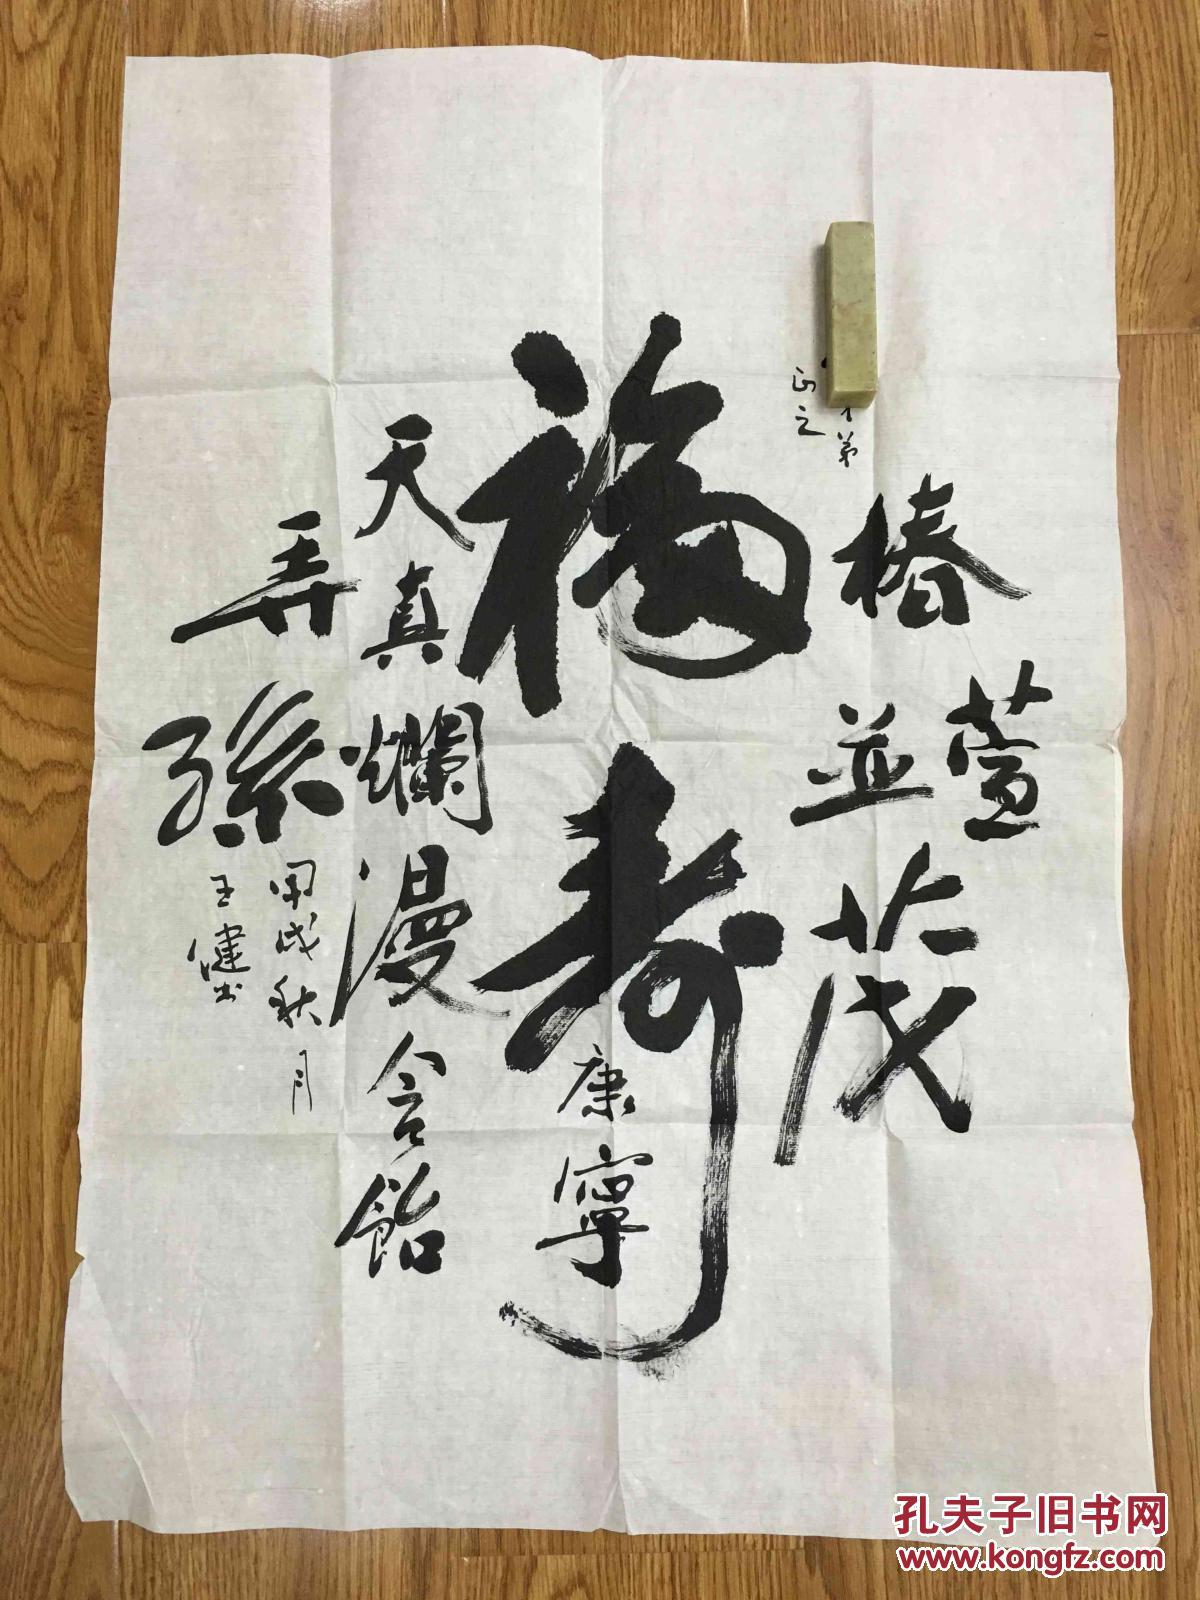 弟
正之
椿萱
並茂
福壽
康寧
天真爛漫含飴
弄孫
甲戌秋月
王健书
孔夫子旧书网
www.kongfz.com